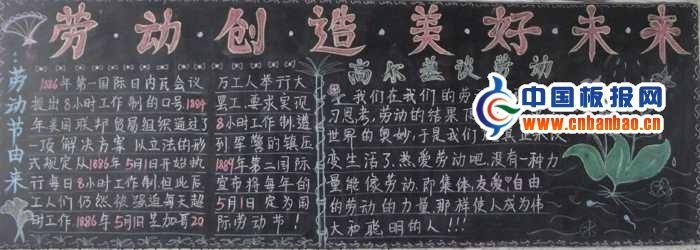 劳动创造美好未来
劳动节由来
1886年第一国际日内瓦会议
提出8小时工作制的口号,1884
年美国联邦贸易组织通过了
一项解决方案以立法的形
式规定从1886年5月1日开始执
行每日8小时工作制但此后
工人们仍然被强迫每天超
时工作1886年5月1日芝加哥20
万工人举行大
罢工,要求实现
8小时工作制遭
到军警的镇压
1889年第二国际
宣布将每年的
5月1日定为国
际劳动节!
高尔基谈劳动
我们在我们的劳动
习思考,劳动的结果
世界的奥妙,于是我们
变生活了.热爱劳动吧.没有一种力
量能像劳动.即集体、友爱、自由
的劳动的力量,那样使人成为伟
大和聪明的人!!!
中国板报网
www.cnbanbao.cn